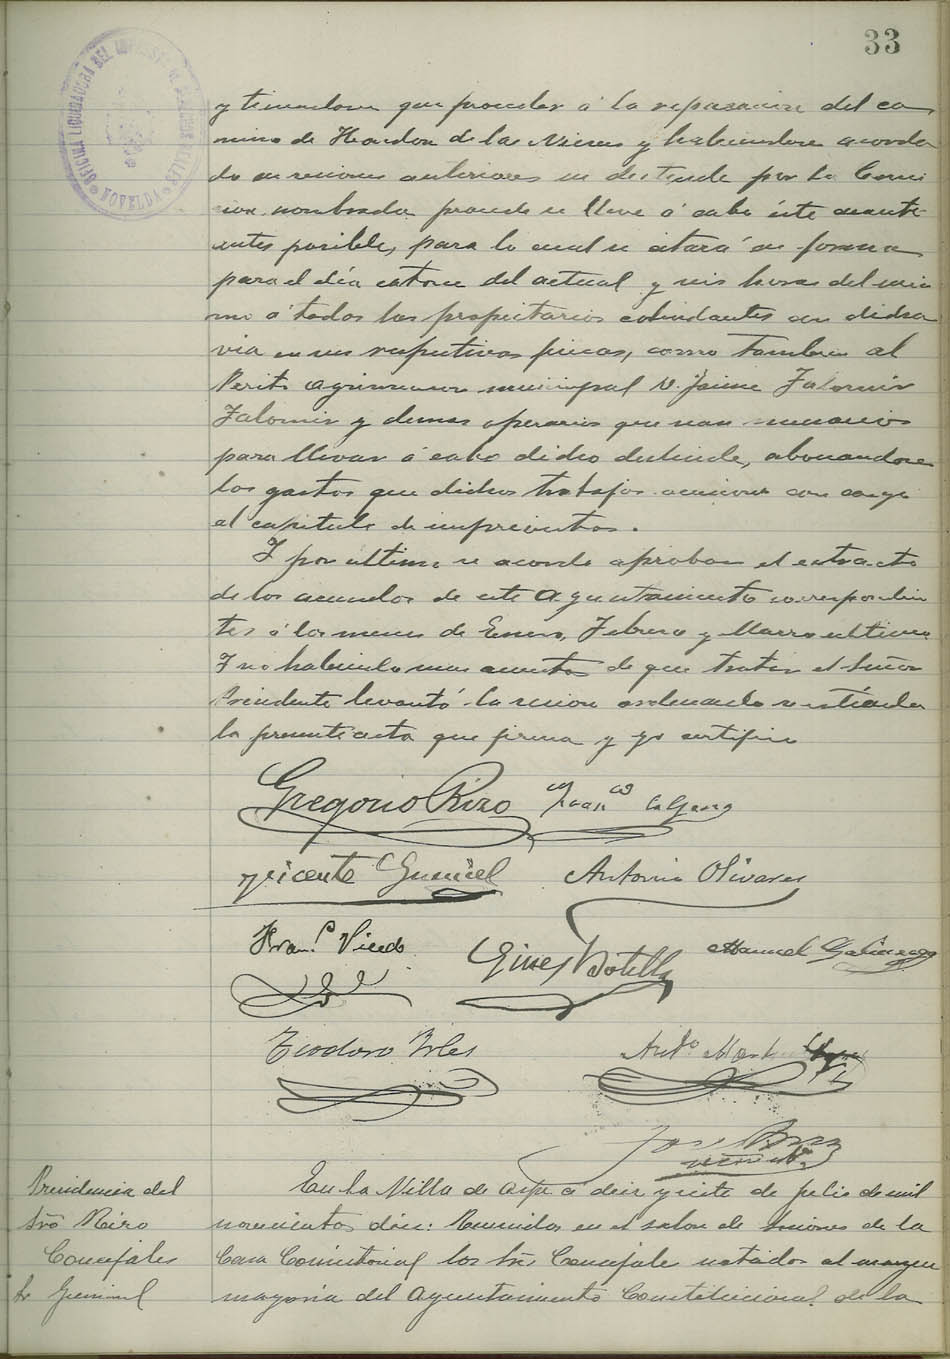 33
OFICINA LIQUIDADORA DEL IMPUESTO DE DERECHOS REALES NOVELDA
y teniendose que proceder á la reparacion del ca
mino de Hondon de las Nieves y habiendose acorda
do en sesiones anteriores su deslinde por la Comi
sion nombrada procede se lleve á cabo éste cuanto
antes posible, para lo cual se citará en forma
para el día catorce del actual y seis horas del mis
mo á todos los propietarios colindantes con dicha
via en sus respectivas fincas, como tambien al
Perito agrimensor municipal D. Jaime
y demas operarios que sean necesarios
para llevar á cabo dicho deslinde, abonandose
los gastos que dichos trabajos ocasionen con cargo
al capitulo de imprevistos.
Y por ultimo se acordo aprobar el extracto
de los acuerdos de este Ayuntamiento correspondien
tes á los meses de Enero, Febrero y Marzo ultimos.
Y no habiendo mas asuntos de que tratar el Señor
Presidente levantó la sesion ordenando se extienda
la presente acta que firma y yo certifico
Gregorio Rizo Franco
Vicente Antonio Olivares
Franco Vicedo Gines Botella Manuel
Teodoro Irles Anto
Jose
Presidencia del
Srõ Rizo
Concejales
Sr
En la Villa de Aspe á diez y siete de julio de mil
novecientos diez: Reunidos en el salon de sesiones de la
Casa Consistorial los Srẽs Concejales notados al margen
mayoria del Ayuntamiento Constitucional de la